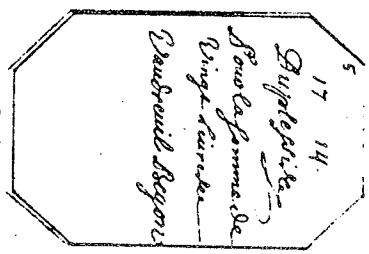 5
17 14.
Duplessis
Pour la somme de
Vingt Livres
Vaudreuil Begon